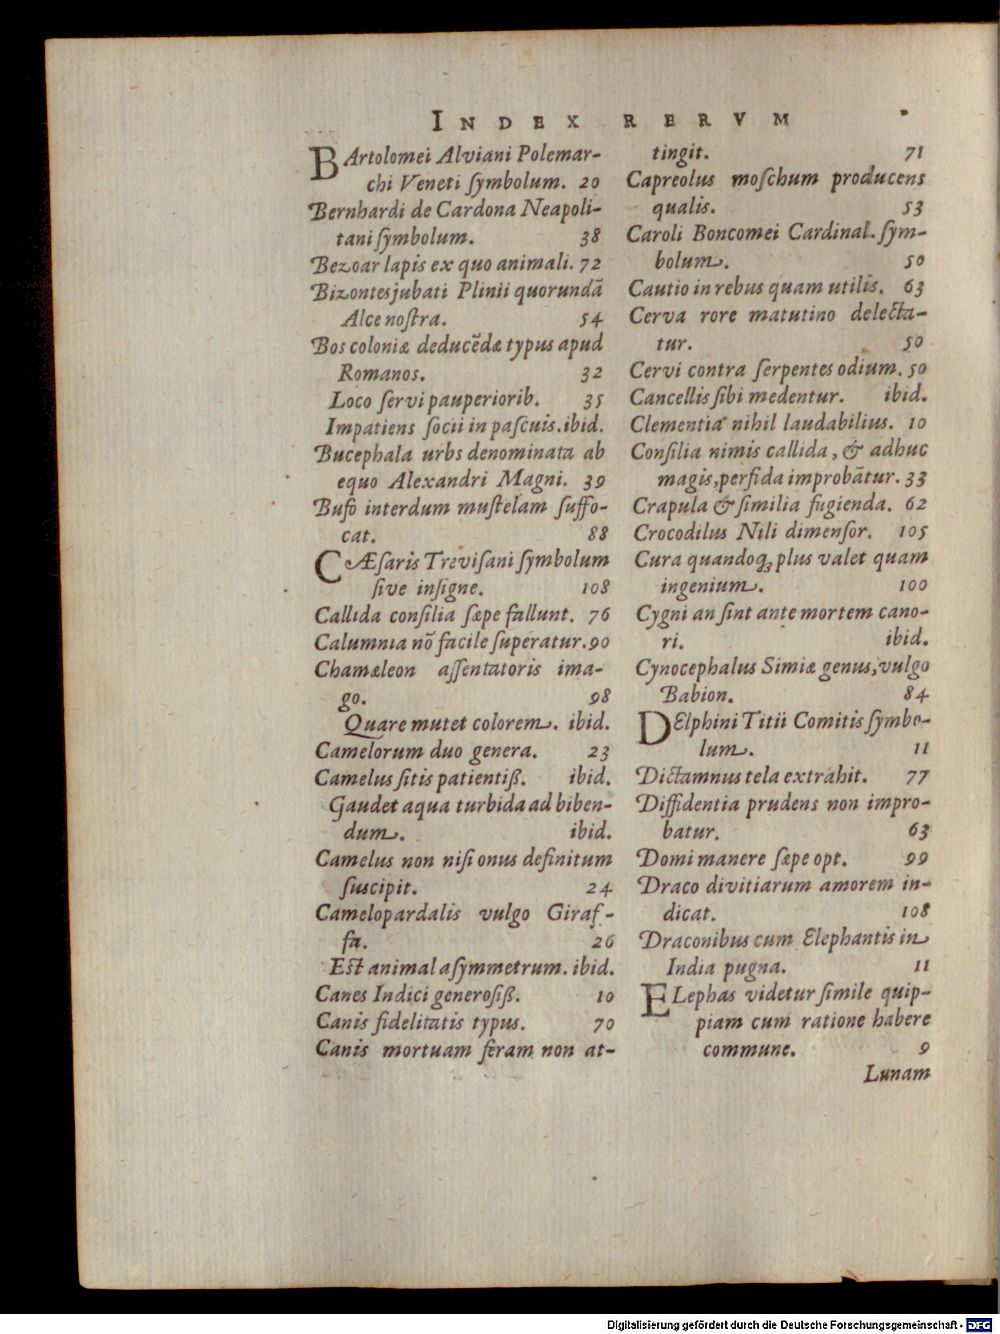 INDEX RERVM
BArtolomei Alviani Polemar-
chi Veneti ſymbolum. 20
Bernhardi de Cardona Neapoli-
tani ſymbolum. 38
Bezoar lapis ex quo animali. 72
Bizontes jubati Plinii quorundã
Alce noſtra. 54
Bos coloniæ deducẽdæ typus apud
Romanos. 32
Loco ſervi pauperiorib. 35
Impatiens ſocii in paſcuis. ibid.
Bucephala urbs denominata ab
equo Alexandri Magni. 39
Bufo interdum muſtelam ſuffo-
cat. 88
CÆſaris Treviſani ſymbolum
ſive inſigne. 108
Callida conſilia ſæpe fallunt. 76
Calumnia nõ facile ſuperatur. 90
Chamæleon aſſentatoris ima-
go. 98
Quare mutet colorem. ibid.
Camelorum duo genera. 23
Camelus ſitis patientiß. ibid.
Gaudet aqua turbida ad biben-
dum. ibid.
Camelus non niſi onus definitum
ſuscipit. 24
Camelopardalis vulgo Giraf-
fa. 26
Eſt animal aſymmetrum. ibid.
Canes Indici generoſiß. 10
Canis fidelitatis typus. 70
Canis mortuam feram non at-
tingit. 71
Capreolus moſchum producens
qualis. 53
Caroli Boncomei Cardinal. ſym-
bolum. 50
Cautio in rebus quam utilis. 63
Cerva rore matutino delecta-
tur. 50
Cervi contra ſerpentes odium. 50
Cancellis ſibi medentur. ibid.
Clementia nihil laudabilius. 10
Conſilia nimis callida, & adhuc
magis, perfida improbãtur. 33
Crapula & ſimilia fugienda. 62
Crocodilus Nili dimenſor. 105
Cura quandoq; plus valet quam
ingenium. 100
Cygni an ſint ante mortem cano-
ri. ibid.
Cynocephalus Simiæ genus, vulgo
Babion. 84
DElphini Titii Comitis ſymbo-
lum. 11
Dictamnus tela extrahit. 77
Diffidentia prudens non impro-
batur. 63
Domi manere ſæpe opt. 99
Draco divitiarum amorem in-
dicat. 108
Draconibus cum Elephantis in
India pugna. 11
ELephas videtur ſimile quip-
piam cum ratione habere
commune. 9
Lunam
Digitalisierung gefördert durch die Deutsche Forschungsgemeinschaft - DFG